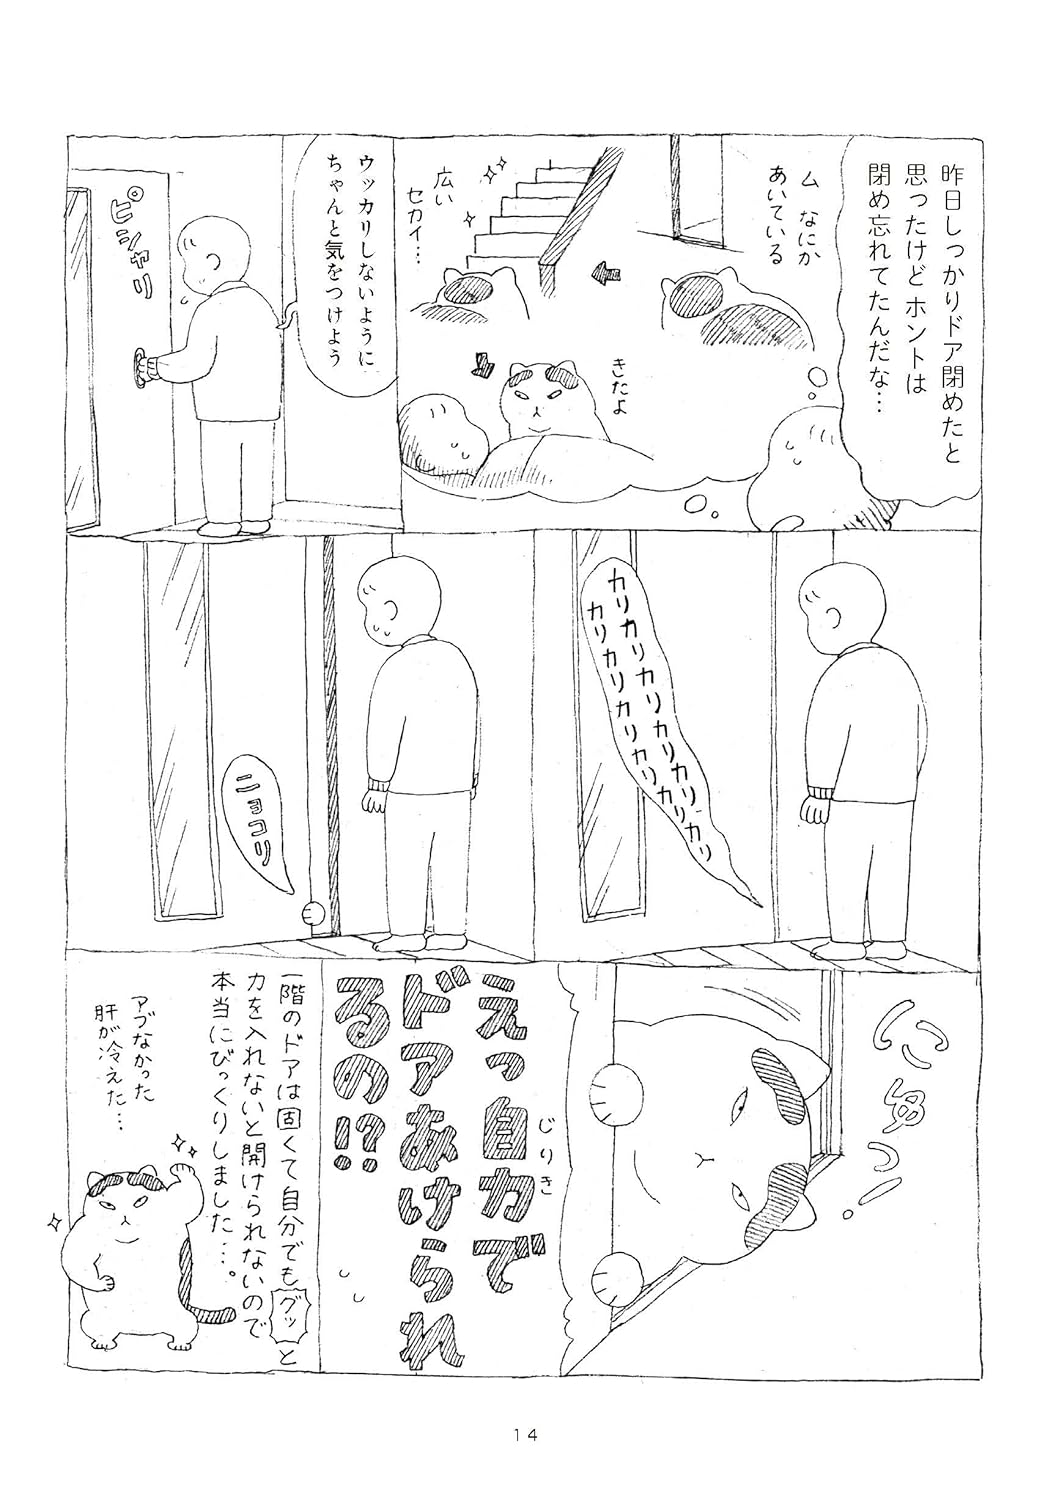 昨日しっかりドア閉めたと
思ったけどホントは
閉め忘れてたんだな…
ム なにか
あいている
広い
セカイ…
きたよ
ウッカリしないように
ちゃんと気をつけよう
ピシャリ
カリカリカリカリカリカリカリ
カリカリカリカリカリカリ
ニョコリ
にゅっ
えっ自力で
じりき
ドアあけられ
るの!?
一階のドアは固くて自分でもグッと
力を入れないと開けられないので
本当にびっくりしました…。
アブなかった
肝が冷えた…
14